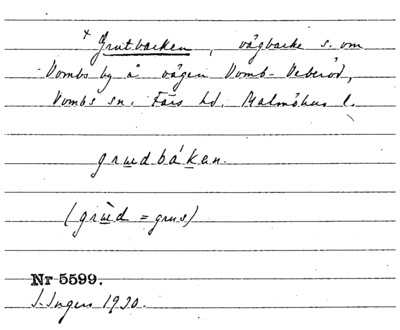 × Grutbacken, vägbacke s. om
Vombs by å vägen Vomb-Veberöd,
Vombs sn. Färs hd. Malmöhus l.
grudbákan.
(grùd = grus)
Nr 5599.
I. Ingers 1930.